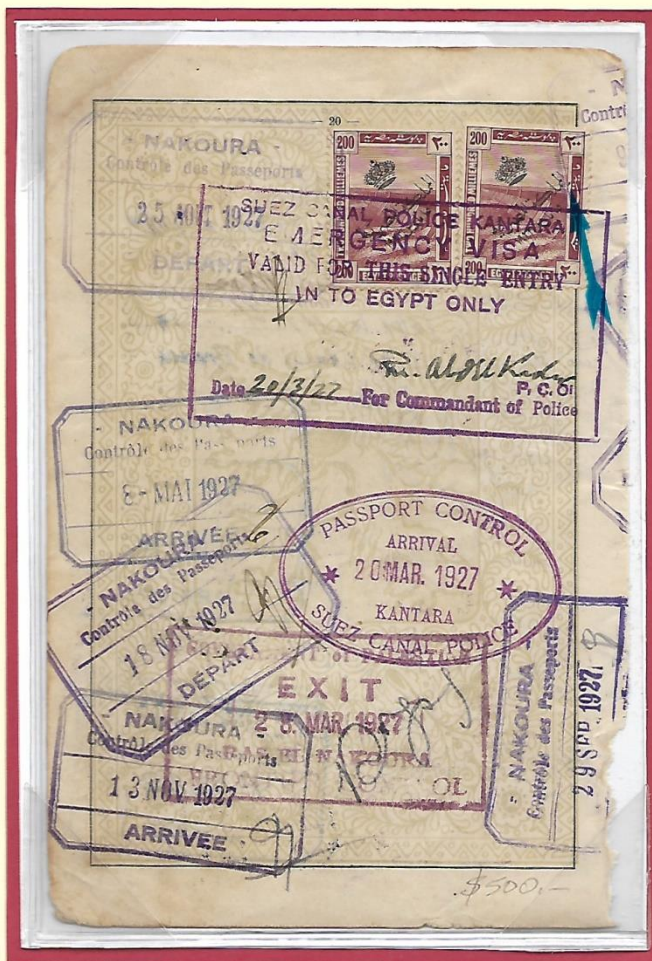 - 20 -
- NAKOURA -
Contrôle des Passeports
25 AOUT 1927
DEPART
200 ٢٠٠
200 ٢٠٠
200 ٢٠٠
200 ٢٠٠
SUEZ CANAL POLICE KANTARA
EMERGENCY VISA
VALID FOR THIS SINGLE ENTRY
IN TO EGYPT ONLY
Date 20/3/27
P. C. O.
For Commandant of Police
- NAKOURA -
Contrôle des Passeports
8 - MAI 1927
ARRIVEE
PASSPORT CONTROL
ARRIVAL
20 MAR. 1927
KANTARA
SUEZ CANAL POLICE
- NAKOURA -
Contrôle des Passeports
18 NOV. 1927
DÉPART
EXIT
MAR 1927
- NAKOURA -
Contrôle des Passeports
13 NOV. 1927
ARRIVEE
- NAKOURA -
Contrôle des Passeports
29 SEP. 1927
Contrô
$500.-